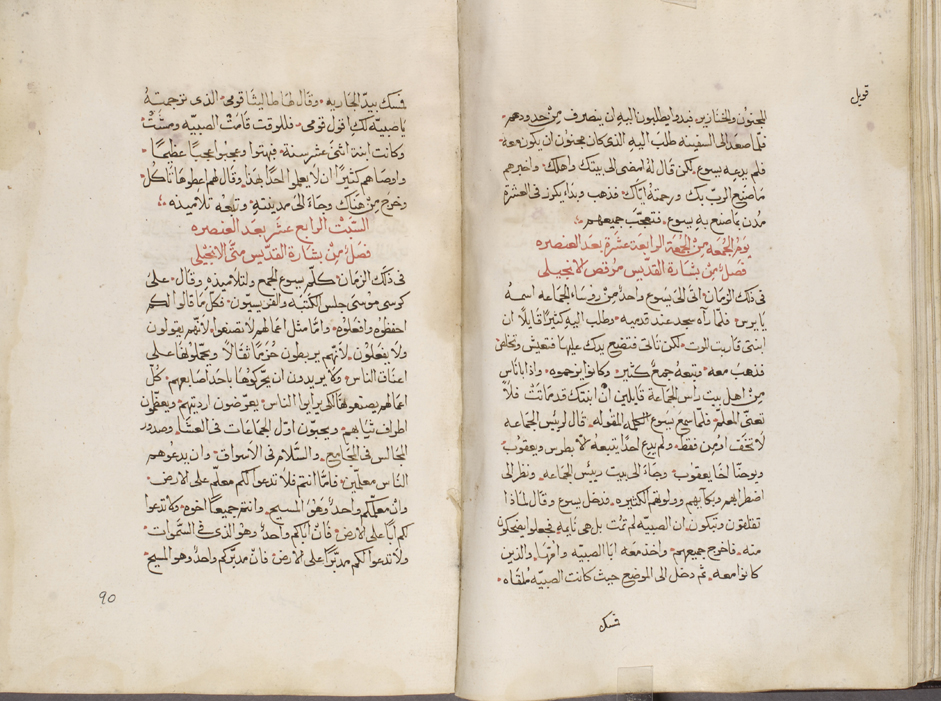 قوبل
المجنون والخنازير فبدوا يطلبون اليه ان ينصرف من حدودهم
فلما صعد الى السفينه طلب اليه الذى كان مجنون ان يكون معه
فلم يدعه يسوع لكن قال له امضى الى بيتك واهلك واخبرهم
ما صنع الرب بك ورحمته اياك فذهب وبدا يكرز فى العشرة
مدن بما صنع به يسوع فتعجب جميعهم
يوم الجمعه من الجمعة الرابعة عشرة بعد العنصره
فصل من بشارة القديس مرقص الانجيلى
فى ذلك الزمان اتى الى يسوع واحد من روساء الجماعه اسمه
يايرس فلما رآه سجد عند قدميه وطلب اليه كثيرا قايلا ان
ابنتى قاربت الموت لكن تاتى فتضع يدك عليها فتعيش وتخلص
فذهب معه وتبعه جمع كثير وكانوا يزحموه واذا باناس
من اهل بيت راس الجماعة قايلين ان ابنتك قد ماتت فلا
تعنى المعلم فلما سمع يسوع الكلمه المقوله قال لريس الجماعه
لا تخف اومن فقط ولم يدع احدا يتبعه الا بطرس ويعقوب
ويوحنا اخا يعقوب وجاء الى بيت رييس الجماعه ونظر الى
اضطرابهم وبكايهم وولولتهم الكثيره فدخل يسوع وقال لماذا
تقلقون وتبكون ان الصبيه لم تمت بل هى نايمه فجعلوا يضحكون
منه فاخرج جميعهم واخذ معه ابا الصبيه وامها والذين
كانوا معه ثم دخل الى الموضع حيث كانت الصبيه ملقاه
فمسك
فمسك بيد الجاريه وقال لها طاليثا قومى الذى ترجمته
يا صبيه لك اقول قومى فللوقت قامت الصبيه ومشت
وكانت ابنة اثنى عشر سنة فبهتوا وعجبوا عجبا عظيما
واوصاهم كثيرا ان لا يعلموا احدا بهذا وقال لهم اعطوها تاكل
وخرج من هناك وجاء الى مدينته وتبعه تلاميذه
السبت الرابع عشر بعد العنصره
فصل من بشارة القديس متى الانجيلى
فى ذلك الزمان كلم يسوع الجمع ولتلاميذه وقال على
كرسى موسى جلس الكتبه والفريسيون فكل ما قالوا لكم
احفظوه وافعلوه واما مثل اعمالهم لا تصنعوا لانهم يقولون
ولا يفعلون لانهم يربطون حزما ثقالا ويحملونها على
اعناق الناس ولا يريدون ان يحركوها باحد اصابعهم كل
اعمالهم يصنعوها لكى يرايوا الناس يعرضون ارديتهم ويعظمون
اطراف ثيابهم ويحبون اول الجماعات فى العشا وصدور
المجالس فى المجامع والسلام فى الاسواق وان يدعوهم
الناس معلمين فاما انتم فلا تدعوا لكم معلم على الارض
وان معلمكم واحد وهو المسيح وانتم جميعا اخوه ولا تدعوا
لكم ابا على الارض فان اباكم واحد وهو الذى فى السموات
ولا تدعوا لكم مدبرا على الارض فان مدبركم واحد وهو المسيح
90